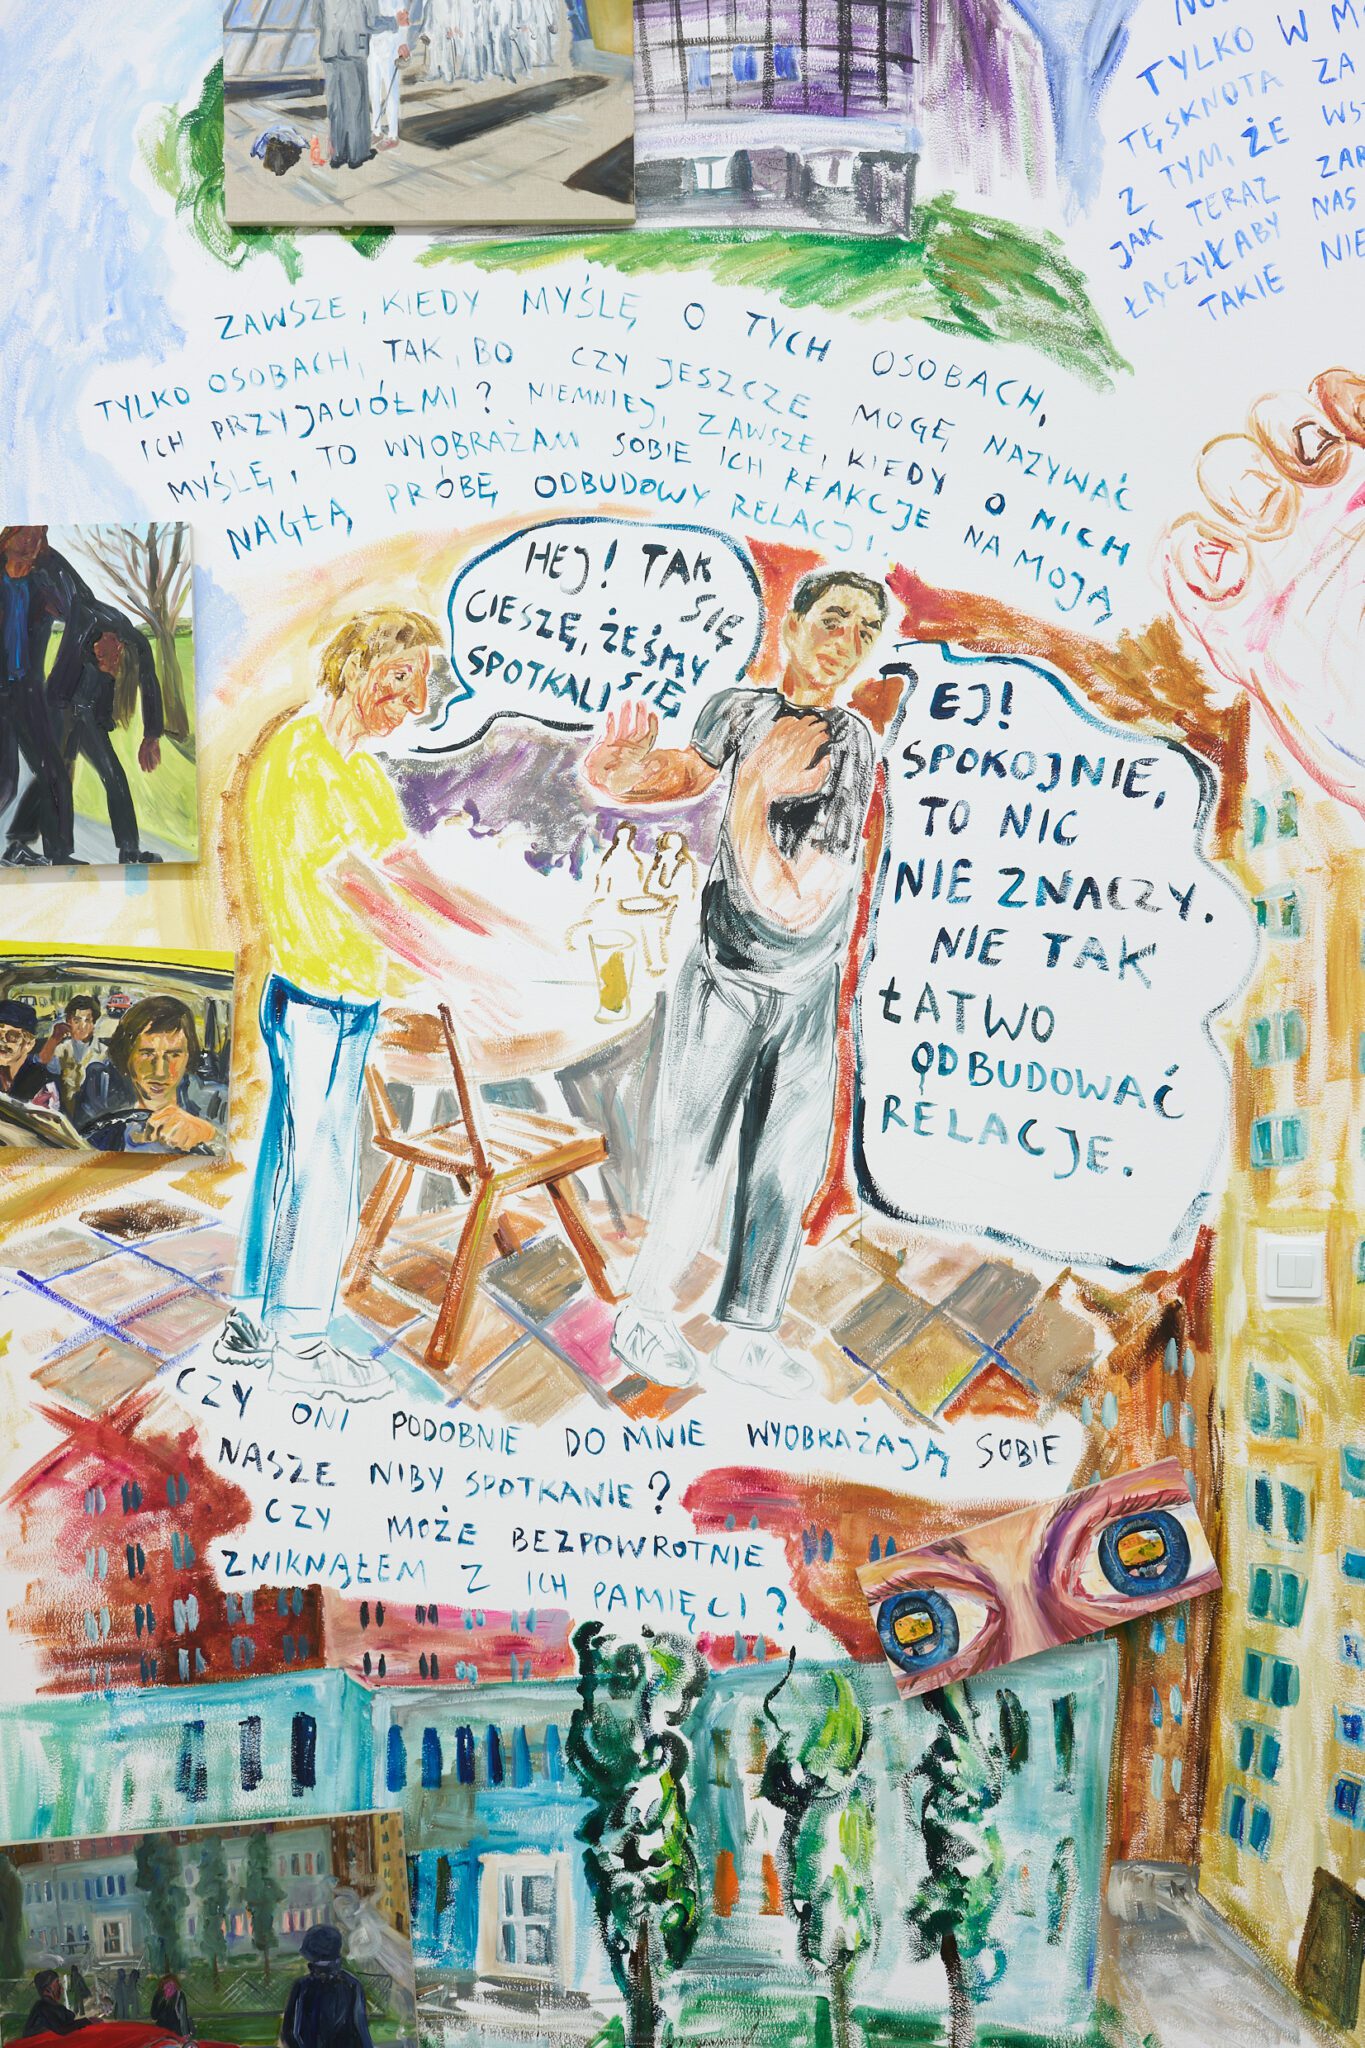 TYLKO W
TĘSKNOTA ZA
Z TYM, ŻE
JAK TERAZ
ŁĄCZYŁABY NAS
TAKIE
ZAWSZE, KIEDY MYŚLĘ O TYCH OSOBACH,
TYLKO OSOBACH, TAK, BO CZY JESZCZE MOGĘ NAZYWAĆ
ICH PRZYJACIÓŁMI? NIEMNIEJ, ZAWSZE, KIEDY O NICH
MYŚLĘ, TO WYOBRAŻAM SOBIE ICH REAKCJE NA MOJĄ
NAGŁĄ PRÓBĘ ODBUDOWY RELACJI.
HEJ! TAK
SIĘ
CIESZĘ, ŻEŚMY
SIĘ
SPOTKALI
EJ!
SPOKOJNIE,
TO NIC
NIE ZNACZY.
NIE TAK
ŁATWO
ODBUDOWAĆ
RELACJE.
CZY ONI PODOBNIE DO MNIE WYOBRAŻAJĄ SOBIE
NASZE NIBY SPOTKANIE?
CZY MOŻE BEZPOWROTNIE
ZNIKNĄŁEM Z ICH PAMIĘCI?